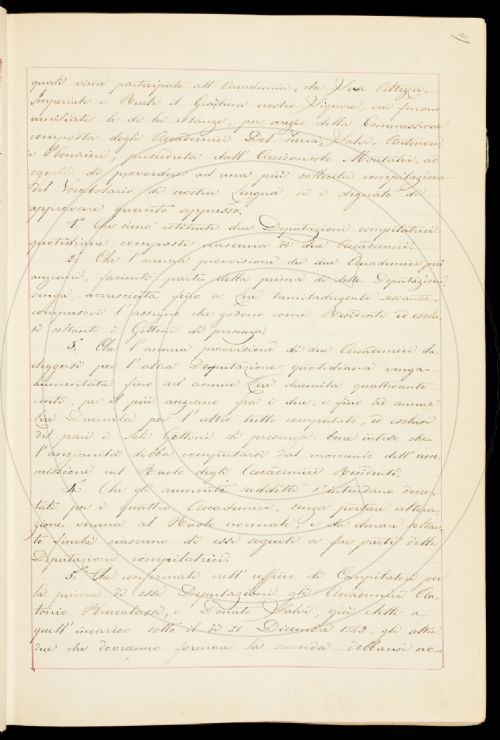 quali viene participato all'Accademia, che Sua Altezza,
Imperiale e Reale il Granduca nostro Signore, cui furono
umiliate le di lei istanze, per mezzo della Commissione
composta degli Accademici Del Furia, Valeri,
e Bonaini, presieduta dall'Arciconsolo Montalvi, ad
oggetto di provvedere ad una più sollecita compilazione
del Vocabolario di nostra Lingua, si è degnato di
approvare quanto appresso.
1.° Che sieno istituite due Deputazioni compilatrici
quotidiane, composte ciascuna di due Accademici.
2.° Che l'annua provvisione dei due Accademici più
anziani, facienti parte della prima di dette Deputazioni
venga accresciuta fino a Lire
compresovi l'assegno che godono come Residenti ed esclu-
si soltanto i Gettoni di presenza.
3.° Che l'annua provvisione di due Accademici da
eleggersi per l'altra Deputazione quotidiana venga
aumentata fino ad annue Lire duemila quattrocento
venti, per il più anziano fra i due, e fino ad annue
lire Duemila per l'altro tutto computato, ed esclusi
del pari i soli Gettoni di presenza. Bene inteso che
l'anzianità debba computarsi dal momento dell'am-
missione nel Ruolo degli Accademici Residenti.
4.° Che gli aumenti suddetti s'intendano decre-
tati per i quattro Accademici, senza portare altera-
zione veruna al Ruolo normale, e da durare soltan-
to finchè ciascuno di essi seguiti a far parte delle
Deputazioni compilatrici.
5.° Che confermati nell'uffizio di Compilatori per
la prima di esse Deputazioni gli Accademici
Brucalassi, e Donato Salvi, già eletti a
quell'incarico sotto il dì 21 Dicembre 1843, gli altri
due che dovranno formare la seconda debbansi